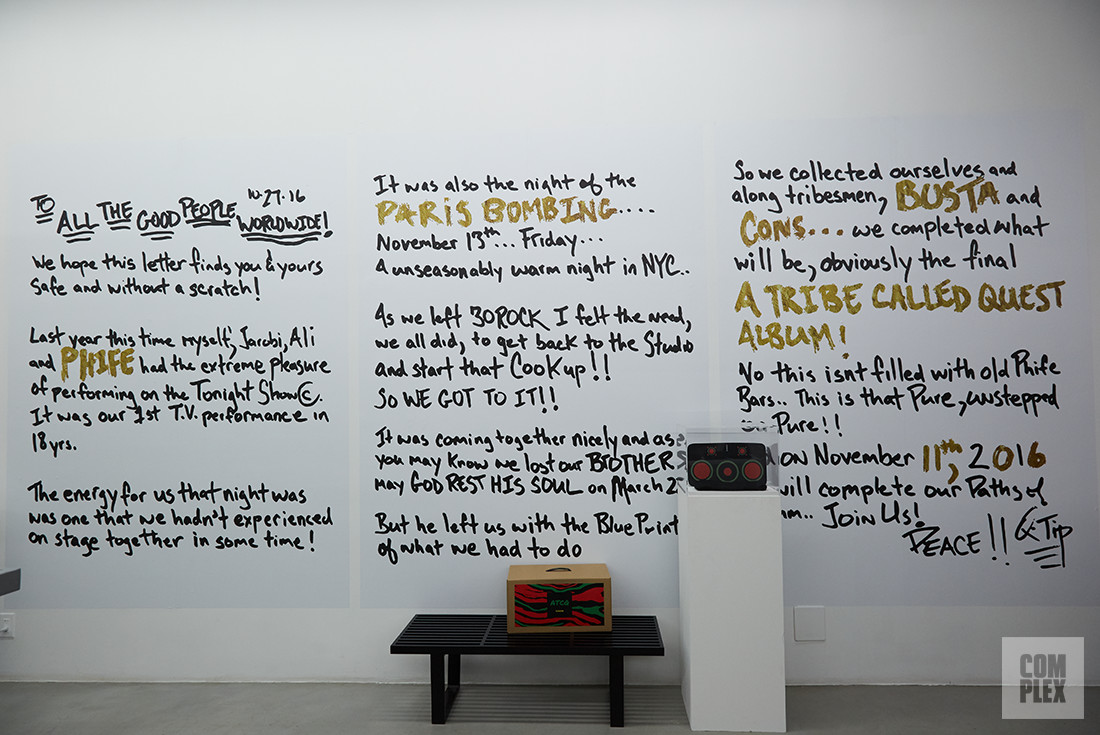 TO ALL THE GOOD PEOPLE WORLDWIDE! 10.27.16
We hope this letter finds you & yours
Safe and without a scratch!
Last year this time myself, Jarobi, Ali
and PHIFE had the extreme pleasure
of performing on the Tonight Show©.
It was our 1st T.V. performance in
18yrs.
The energy for us that night was
was one that we hadn't experienced
on stage together in some time!
It was also the night of the
PARIS BOMBING....
November 13th... Friday...
A unseasonably warm night in NYC..
As we left 30ROCK I felt the need,
we all did, to get back to the Studio
and start that CooKup!!
SO WE GOT TO IT!!
It was coming together nicely and as
you may know we lost our BROTHER
may GOD REST HIS SOUL on March 2
But he left us with the BluePrint
of what we had to do
So we collected ourselves and
along tribesmen, BUSTA and
CONS... we completed what
will be, obviously the final
A TRIBE CALLED QUEST
ALBUM!
No this isnt filled with old Phife
Bars.. This is that Pure, unstepped
on Pure!!
on November 11th, 2016
will complete our Paths of
Join Us!
PEACE!! Q-Tip
ATCQ
COM
PLEX